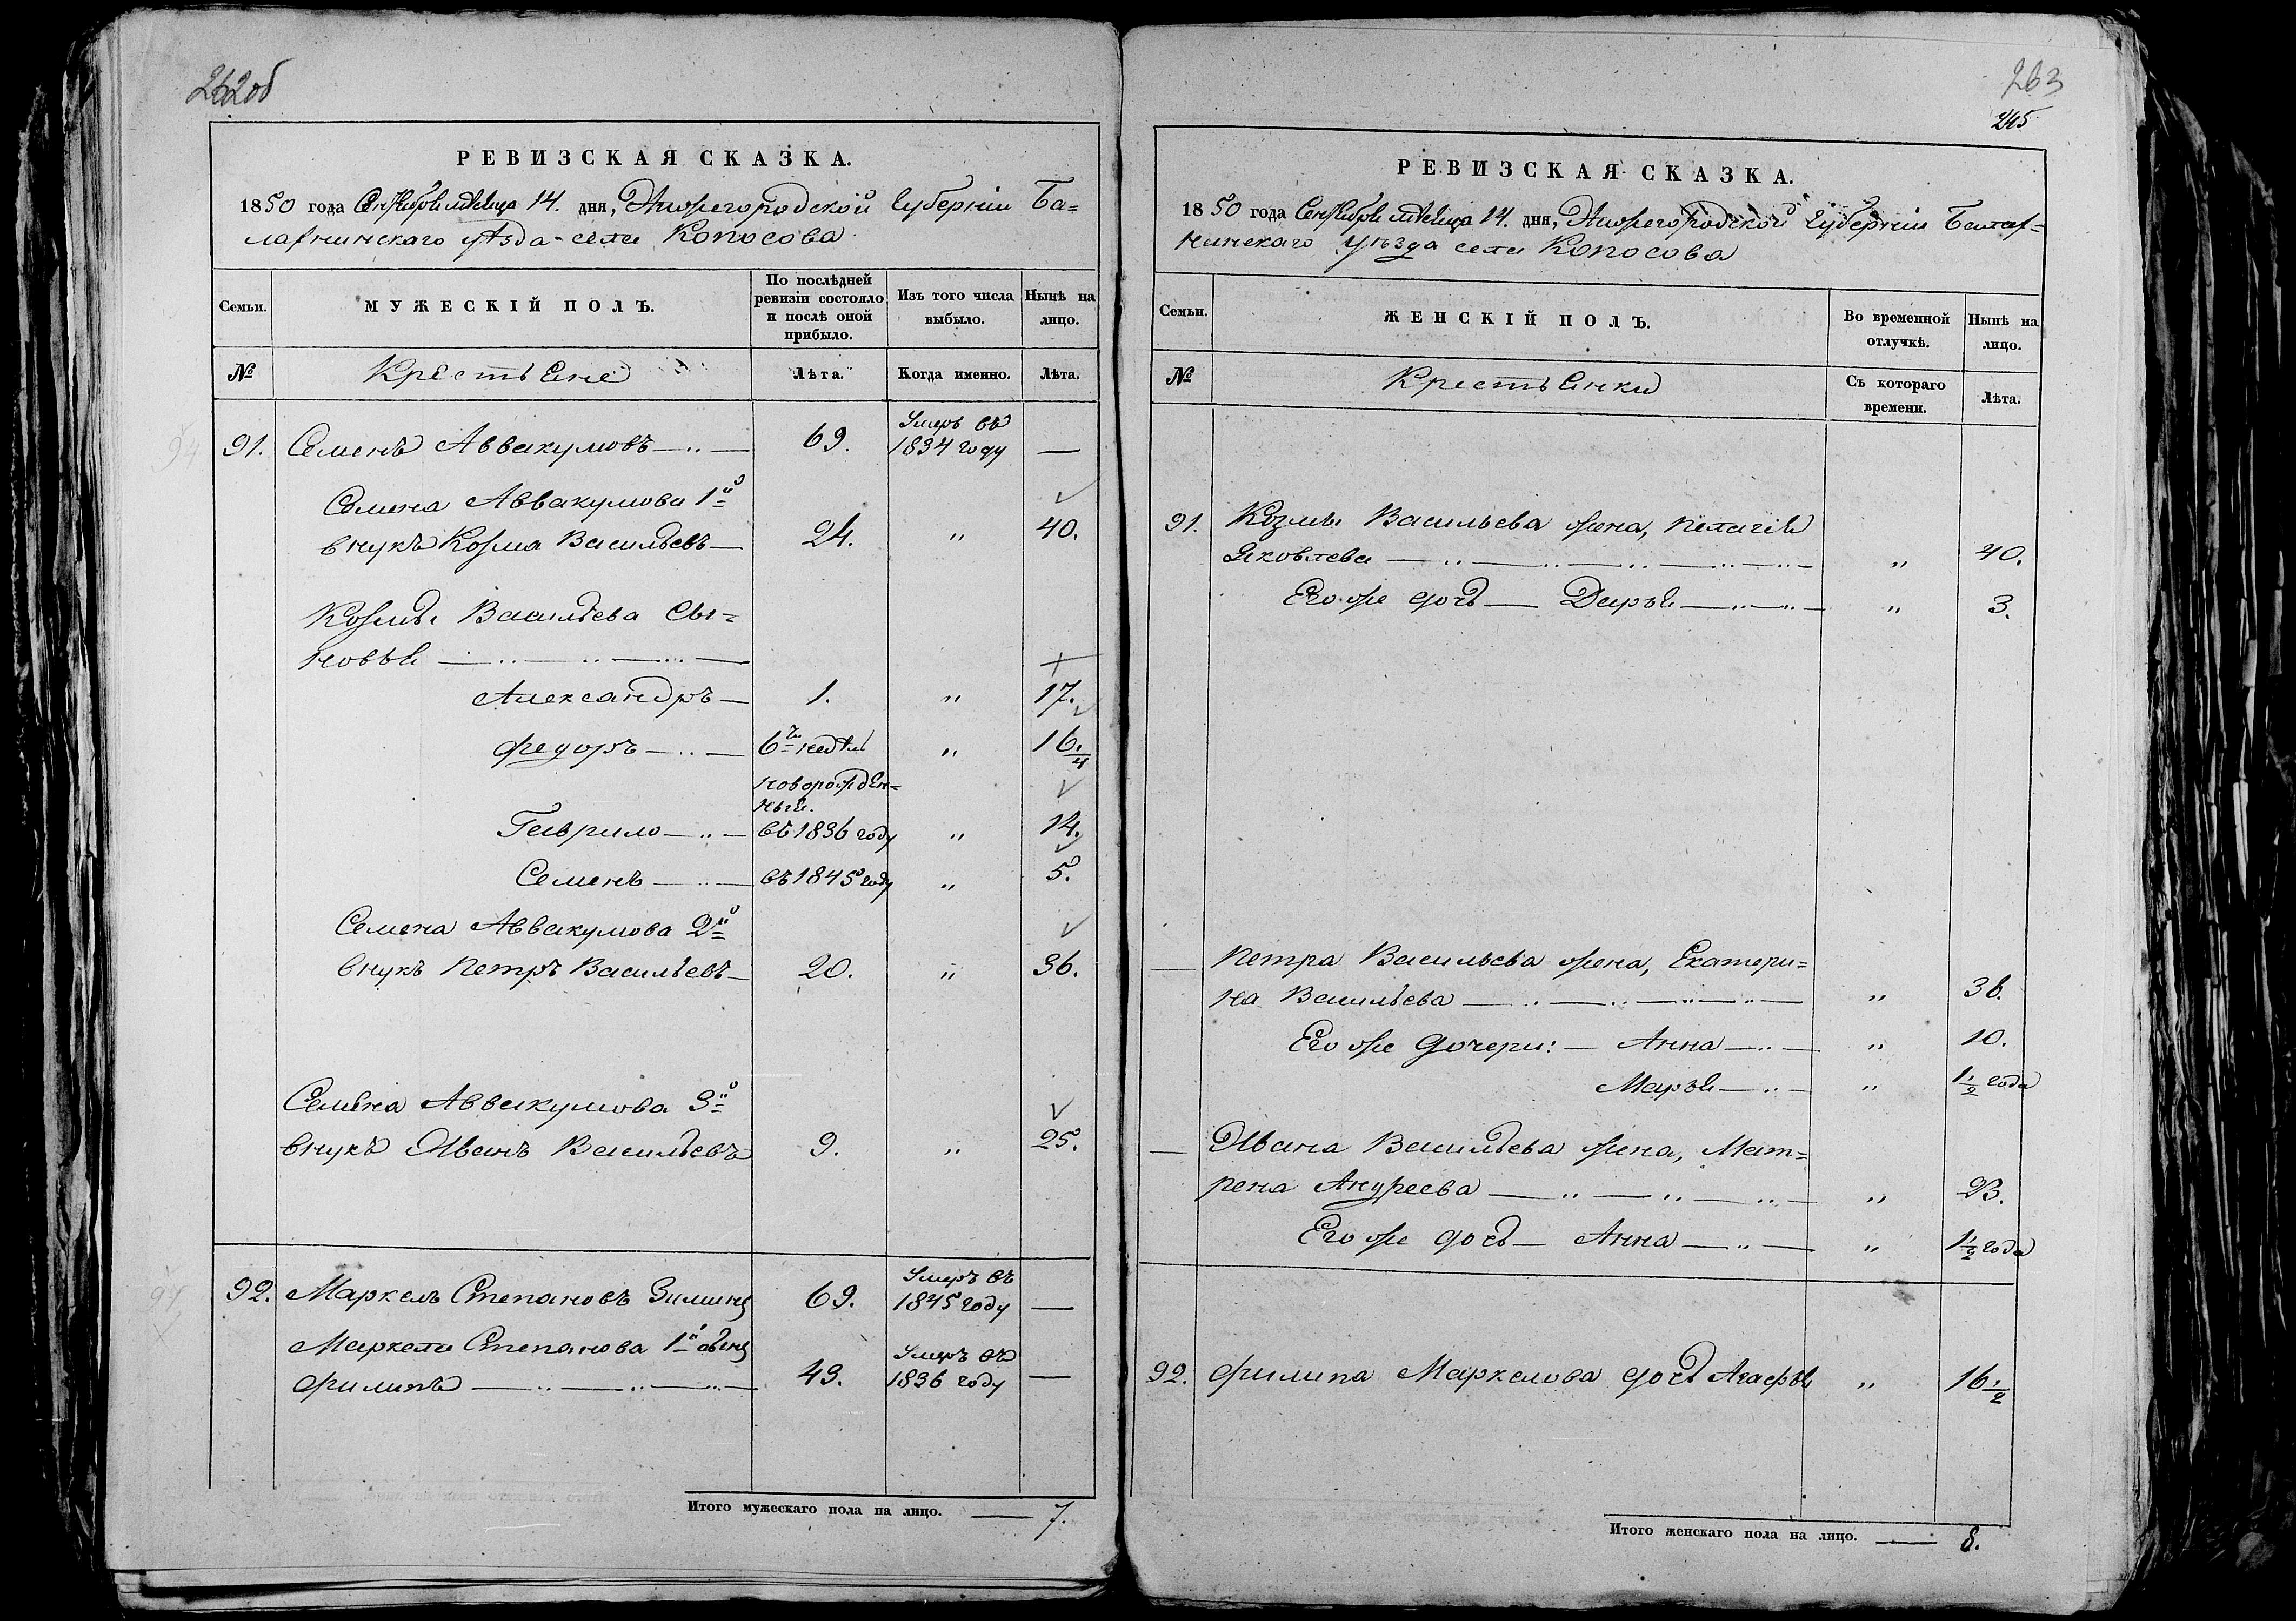 262об
РЕВИЗСКАЯ СКАЗКА.
1850 года Сентября месяца 14. дня, Нижегородской Губерніи Ба=
лахнинскаго уѣзда села Копосова
Семьи.
МУЖЕСКІЙ ПОЛЪ.
По послѣдней ревизіи состояло и послѣ оной прибыло.
Изъ того числа выбыло.
Нынѣ на лицо.
№
Крестьяне
Лѣта.
Когда именно.
Лѣта.
91. Семенъ Аввакумовъ 69. Умеръ въ 1834 году —
Семена Аввакумова 1й
внукъ Козма Васильевъ 24. " 40.
Козмы Васильева сы=
новья
Александръ 1. " 17.
Федоръ 6ти недѣль " 16.1/4
новорожден=
ный.
Гаврило въ 1836 году " 14.
Семенъ въ 1845 году " 5.
Семена Аввакумова 2й
внукъ Петръ Васильевъ 20. " 36.
Семена Аввакумова 3й
внукъ Иванъ Васильевъ 9. " 25.
92. Маркелъ Степановъ Зиминъ 69. Умеръ въ 1845 году —
Маркела Степанова 1й сынъ
Филипъ 43. Умеръ въ 1836 году —
Итого мужескаго пола на лицо. — 7.
263
245
РЕВИЗСКАЯ СКАЗКА.
1850 года Сентября месяца 14. дня, Нижегородской Губерніи Балах=
нинскаго уѣзда села Копосова
Семьи.
ЖЕНСКІЙ ПОЛЪ.
Во временной отлучкѣ.
Нынѣ на лицо.
№
Крестьянки
Съ котораго времени.
Лѣта.
91. Козмы Васильева жена, Пелагія
Яковлева " 40.
Его же дочь — Дарья " 3.
— Петра Васильева жена, Екатери=
на Васильева " 36.
Его же дочери: — Анна " 10.
Марья " 1 1/2 года
— Ивана Васильева жена, Мат=
рена Андреева " 23.
Его же дочь — Анна " 1 1/2 года
92. Филипа Маркелова дочь Агафья " 16 1/2
Итого женскаго пола на лицо. — 8.